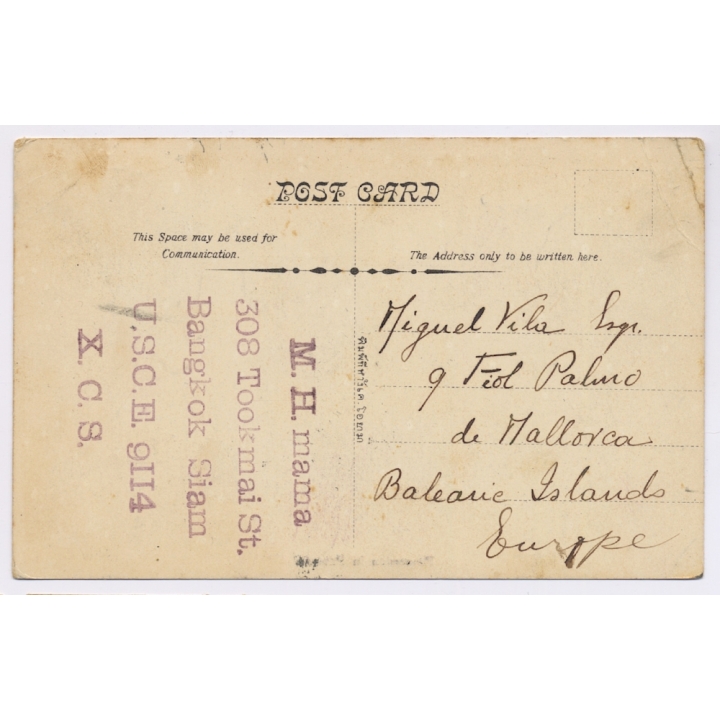 POST CARD
This Space may be used for
Communication.
The Address only to be written here.
M. H. mama
308 Tookmai St.
Bangkok Siam
U.S.C.E. 9114
X. C. S.
Miguel Vila Esqr.
9 Fiol Palma
de Mallorca
Balearic Islands
Europe